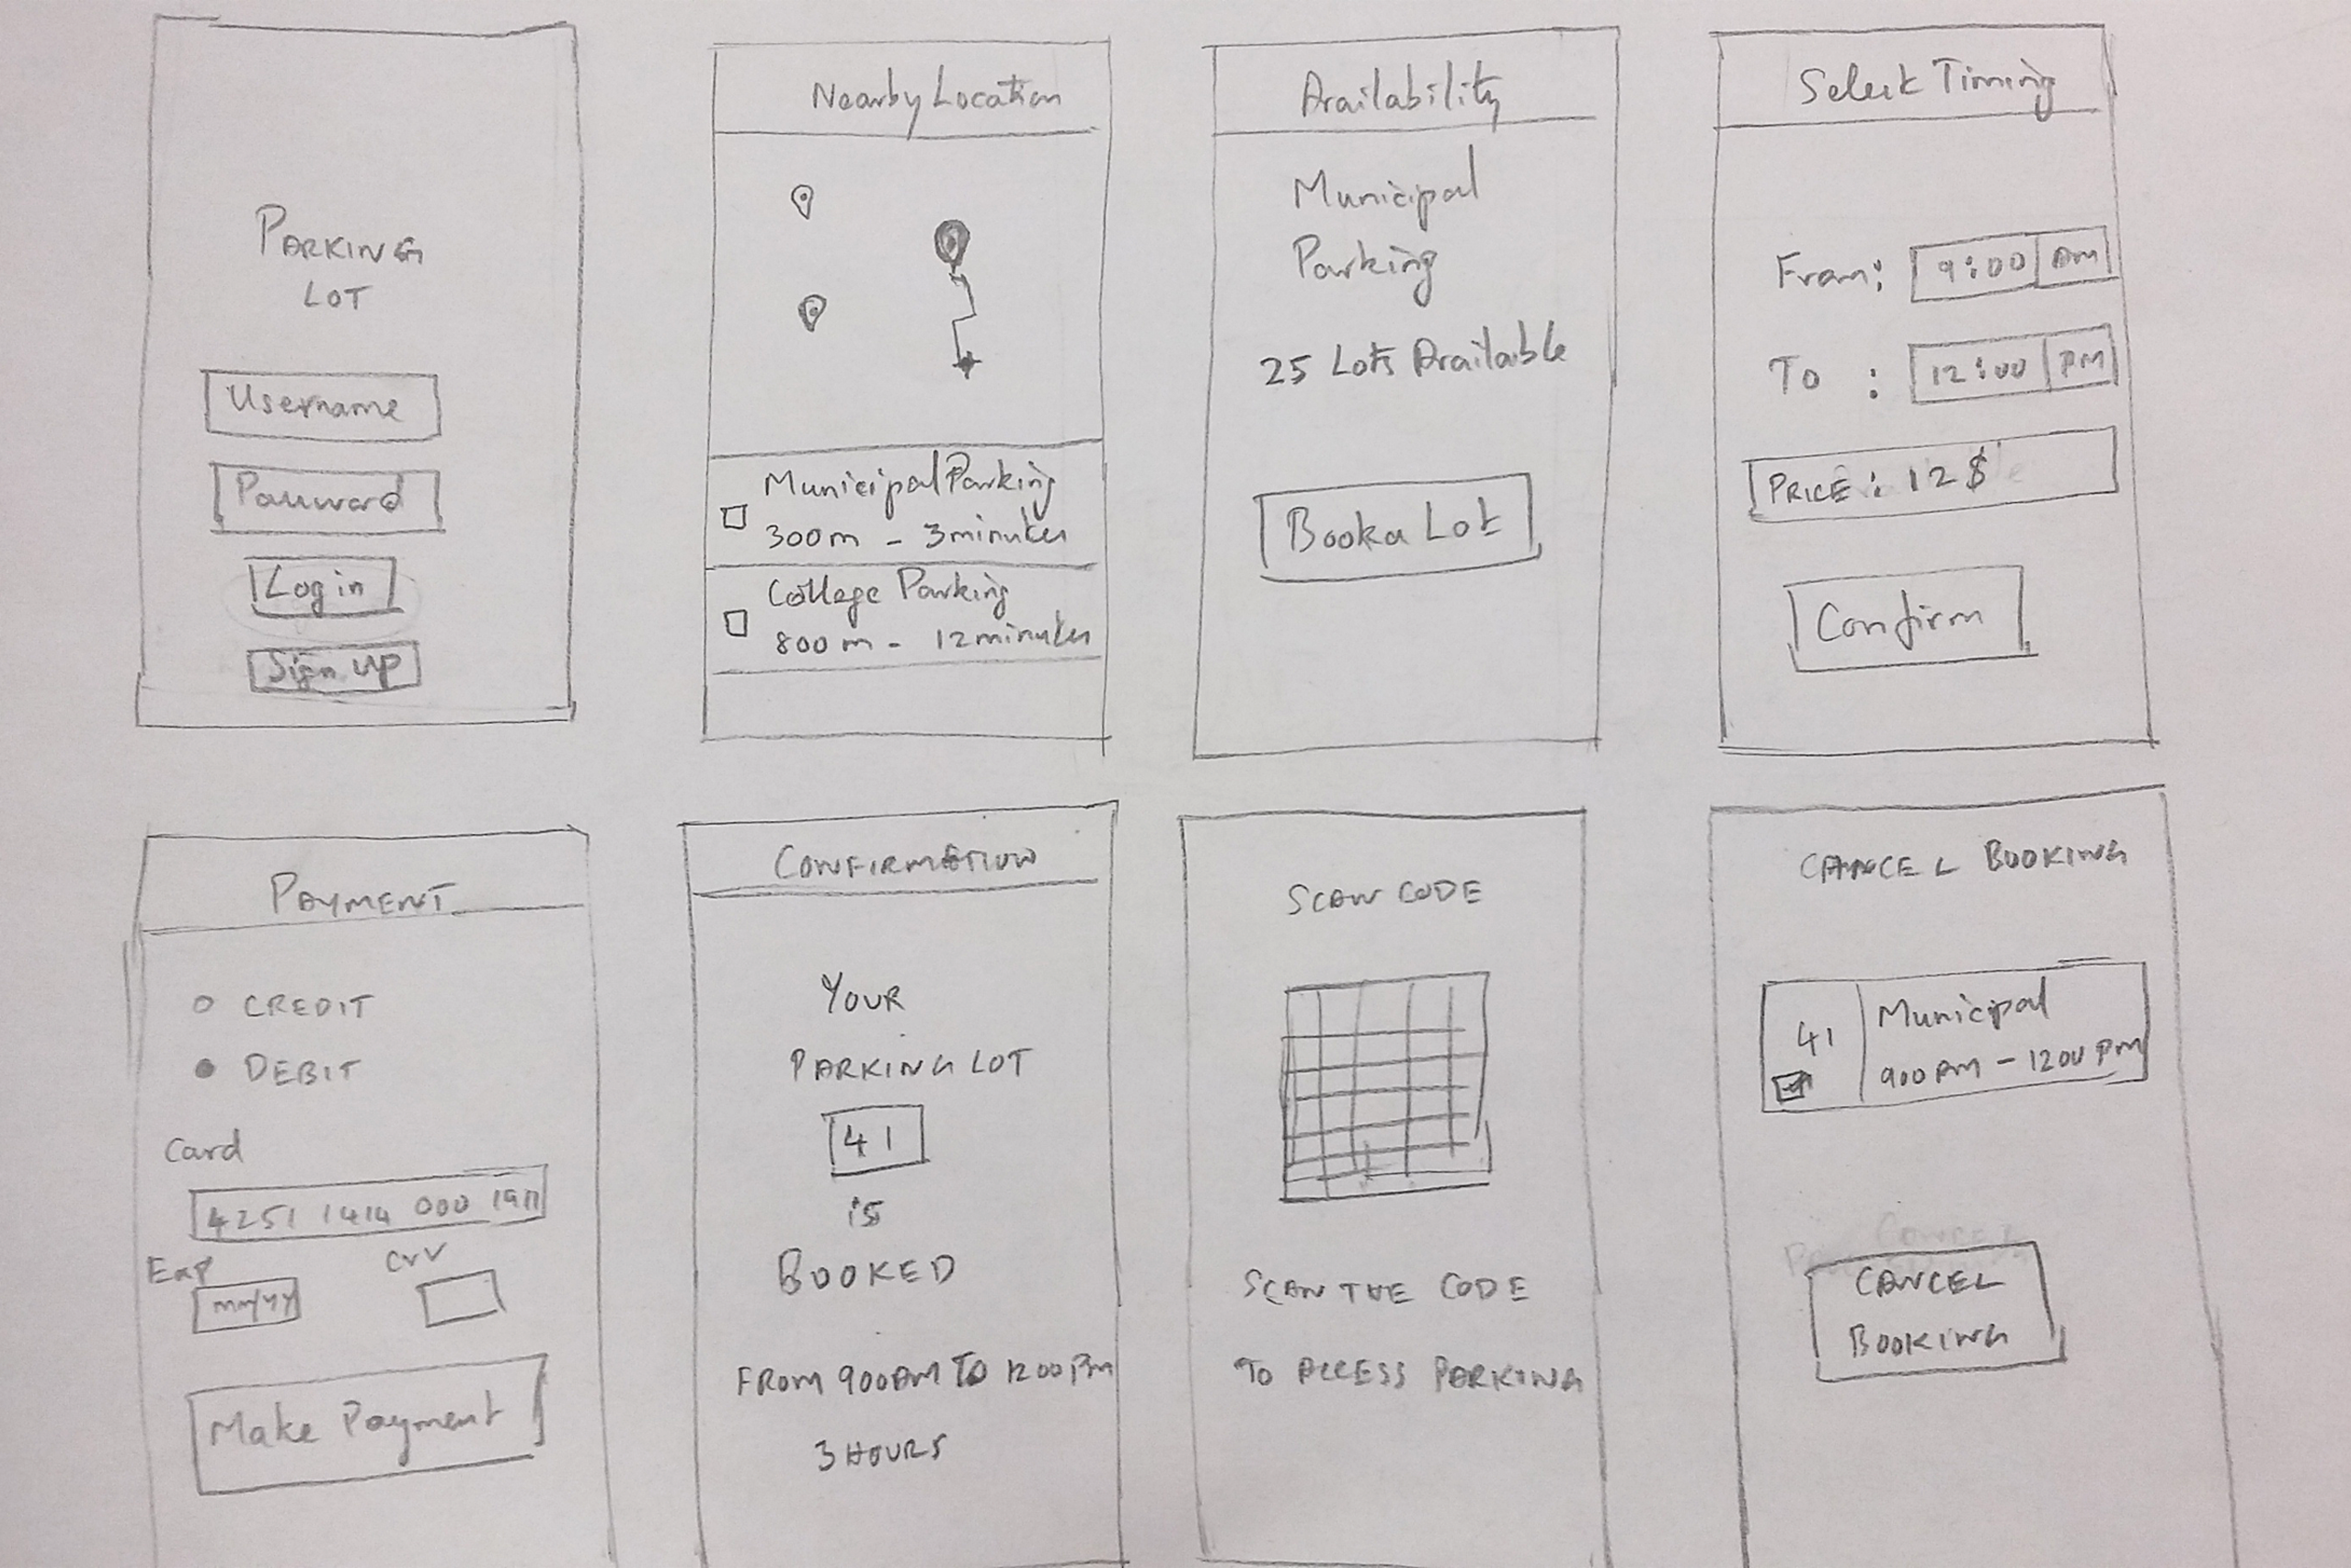 PARKING
LOT
Username
Password
Log in
Sign up
Nearby Location
Municipal Parking
300m - 3 minutes
College Parking
800 m - 12 minutes
Availability
Municipal
Parking
25 Lots Available
Book a Lot
Select Timing
From: 9:00 AM
To : 12:00 PM
PRICE: 12 $
Confirm
PAYMENT
CREDIT
DEBIT
Card
4251 1414 000 1911
Exp CVV
mm/yy
Make Payment
CONFIRMATION
YOUR
PARKING LOT
41
is
BOOKED
FROM 900AM TO 1200PM
3 HOURS
SCAN CODE
SCAN THE CODE
TO ACCESS PARKING
CANCEL BOOKING
41 Municipal
900AM - 1200PM
CANCEL
BOOKING